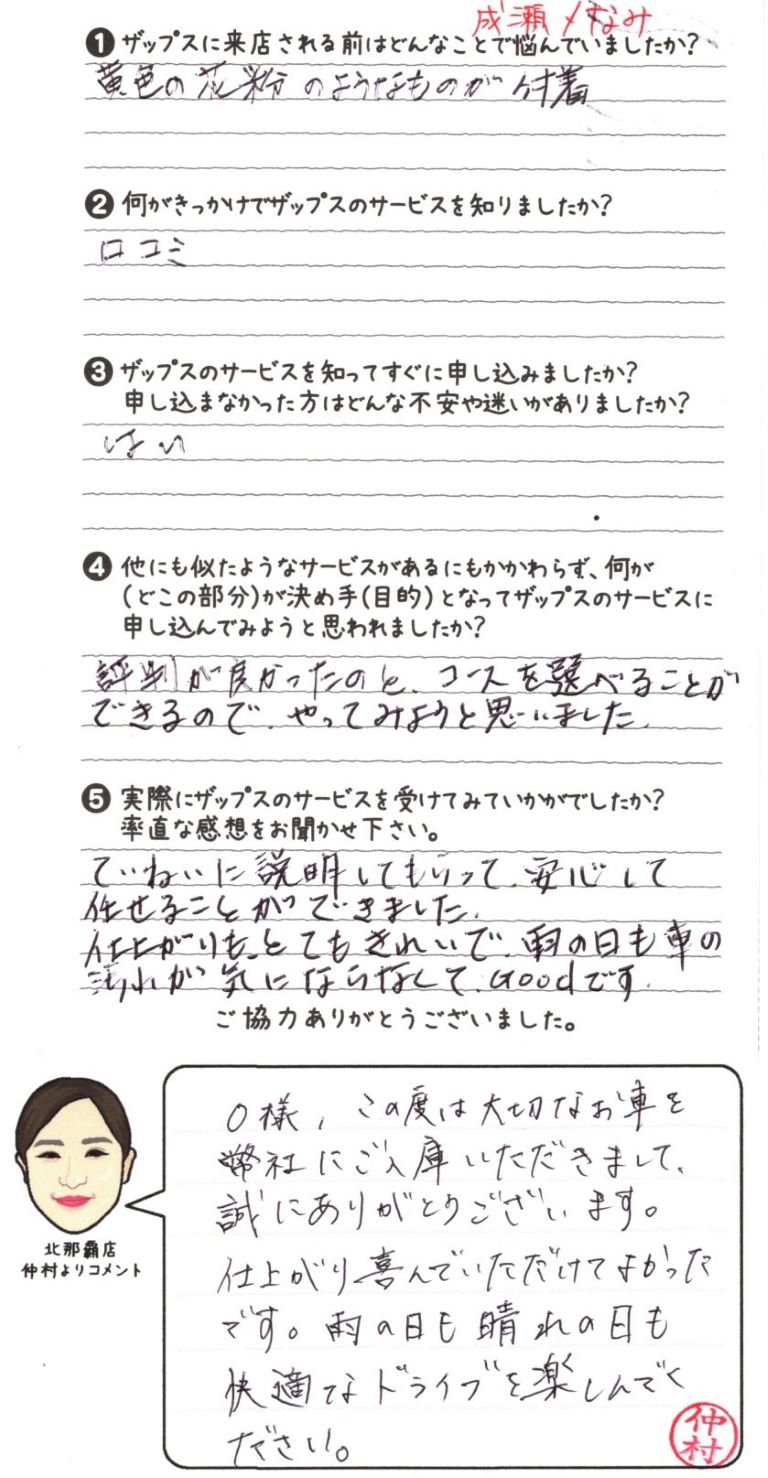 成瀬〆なみ
❶ ザップスに来店される前はどんなことで悩んでいましたか?
黄色の花粉のようなものが付着
❷ 何がきっかけでザップスのサービスを知りましたか?
口コミ
❸ ザップスのサービスを知ってすぐに申し込みましたか?
申し込まなかった方はどんな不安や迷いがありましたか?
はい
❹ 他にも似たようなサービスがあるにもかかわらず、何が
(どこの部分)が決め手(目的)となってザップスのサービスに
申し込んでみようと思われましたか?
評判が良かったのと、コースを選べることが
できるので、やってみようと思いました。
❺ 実際にザップスのサービスを受けてみていかがでしたか?
率直な感想をお聞かせ下さい。
ていねいに説明してもらって、安心して
任せることができました。
仕上がりも、とてもきれいで、雨の日も車の
汚れが気にならなくて、Goodです。
ご協力ありがとうございました。
O様、この度は大切なお車を
弊社にご入庫いただきまして、
誠にありがとうございます。
仕上がり喜んでいただけてよかった
です。雨の日も晴れの日も
快適なドライブを楽しんでく
ださい。
北那覇店
仲村よりコメント
仲村